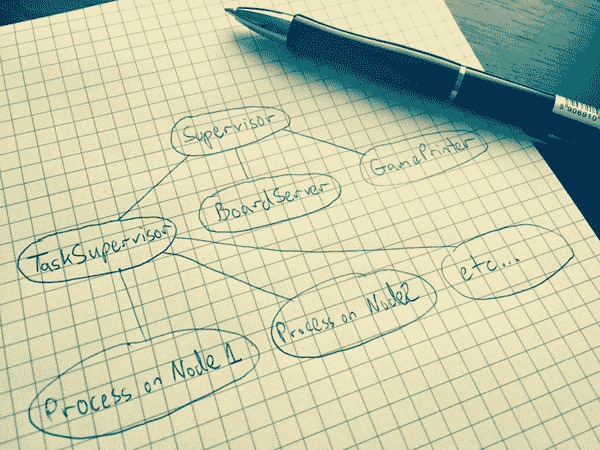 Supervisor
GamePrinter
BoardServer
TaskSupervisor
etc...
Process on Node2
Process on Node 1
5906910